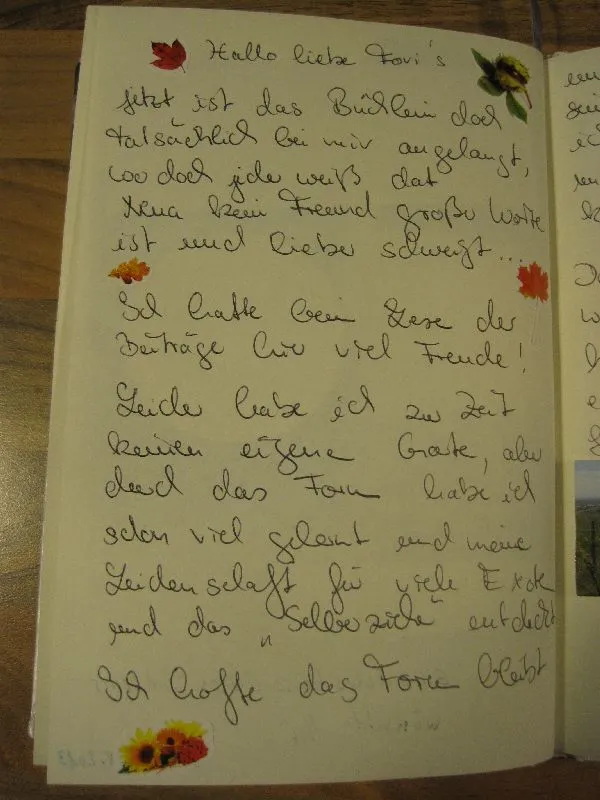 Hallo liebe Fori's
jetzt ist das Büchlein doch
tatsächlich bei mir angelangt,
wo doch jeder weiß dat
kein Freund großer Worte
ist und lieber schweigt...
Ich hatte beim Lese der
Beiträge hier viel Freude!
Leider habe ich zur Zeit
keinen eigene Garte, aber
durch das Forum habe ich
schon viel gelernt und meine
Leidenschaft für viele Exote
und das „Selberziehe" entdeckt
Ich hoffe das Forum bleibt